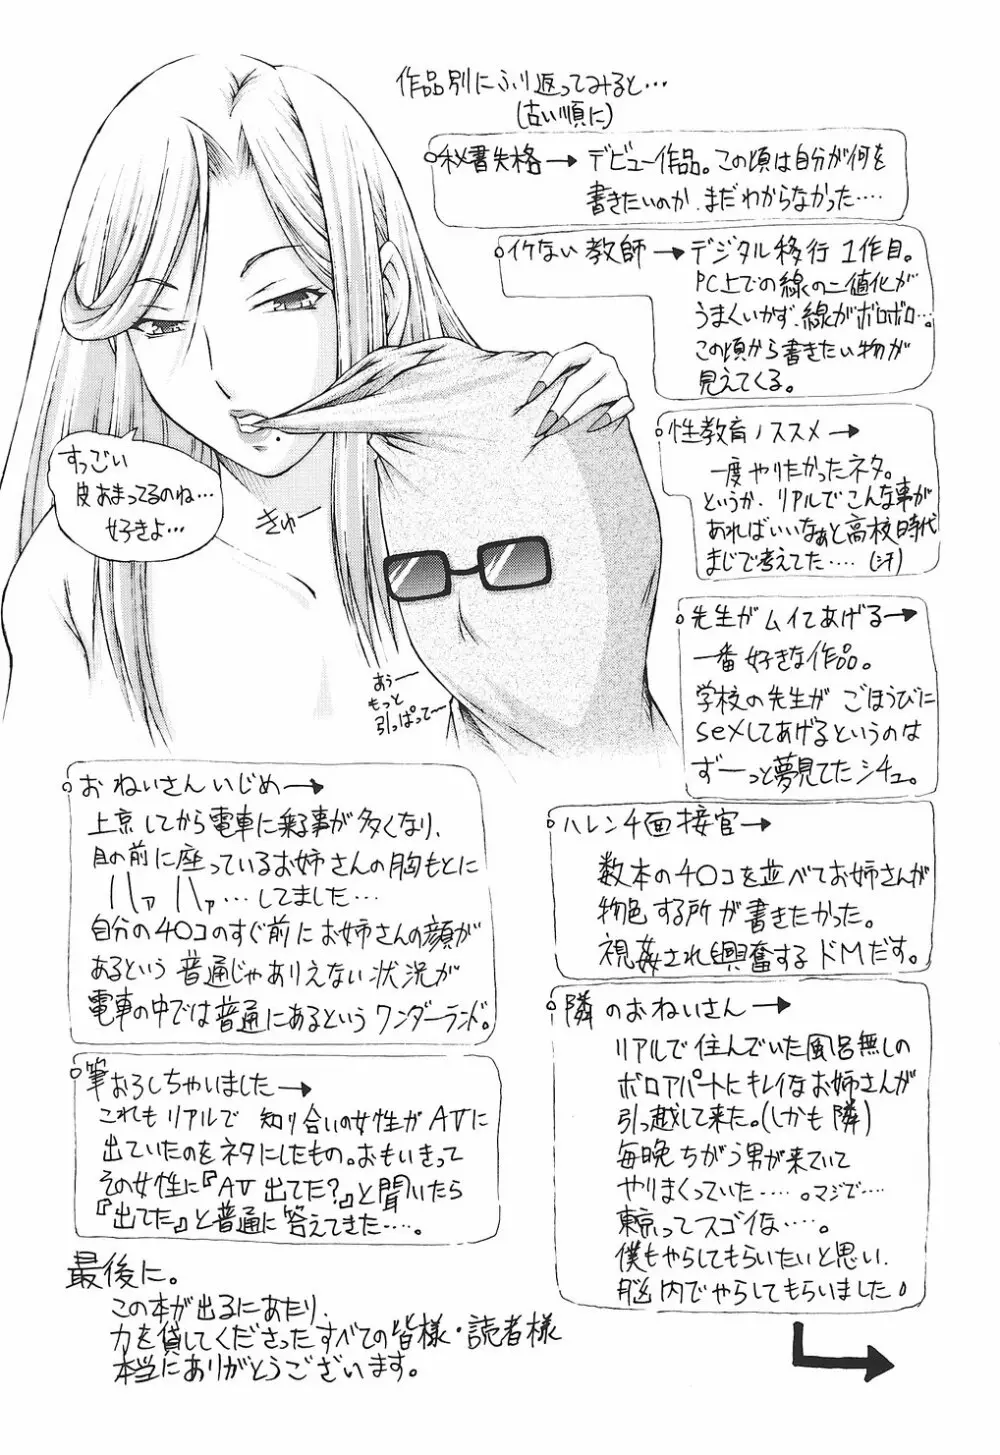 作品別にふり返ってみると…
(古い順に)
秘書失格→デビュー作品。この頃は自分が何を
書きたいのか、まだわからなかった….
イケない教師→デジタル移行1作目。
PC上での線の二値化が
うまくいかず、線がボロボロ…。
この頃から書きたい物が
見えてくる。
性教育ノススメ→
一度やりたかったネタ。
というか、リアルでこんな事が
あればいいなぁと高校時代
まじで考えてた….(汗)
先生がムイてあげる→
一番好きな作品。
学校の先生がごほうびに
sexしてあげるというのは
ずーっと夢見てたシチュ。
すっごい
皮あまってるのね…
好きよ…
きゅー
おぅー
もっと
引っぱって〜
おねいさんいじめ→
上京してから電車に乗る事が多くなり、
目の前に座っているお姉さんの胸もとに
ハァハァ…してました…
自分のチ○コのすぐ前にお姉さんの顔が
あるという普通じゃありえない状況が
電車の中では普通にあるというワンダーランド。
ハレンチ面接官→
数本のチ○コを並べてお姉さんが
物色する所が書きたかった。
視姦され興奮するドMだす。
隣のおねいさん→
リアルで住んでいた風呂無しの
ボロアパートにキレイなお姉さんが
引っ越して来た。(しかも隣)
毎晩ちがう男が来ていて
やりまくっていた….。マジで….
東京ってスゴイな….。
僕もやらしてもらいたいと思い、
脳内でやらしてもらいました。
筆おろしちゃいました→
これもリアルで知り合いの女性がAVに
出ていたのをネタにしたもの。おもいきって
その女性に『AV出てた?』と聞いたら
『出てた』と普通に答えてきた….。
最後に。
この本が出るにあたり、
力を貸してくださったすべての皆様・読者様
本当にありがとうございます。